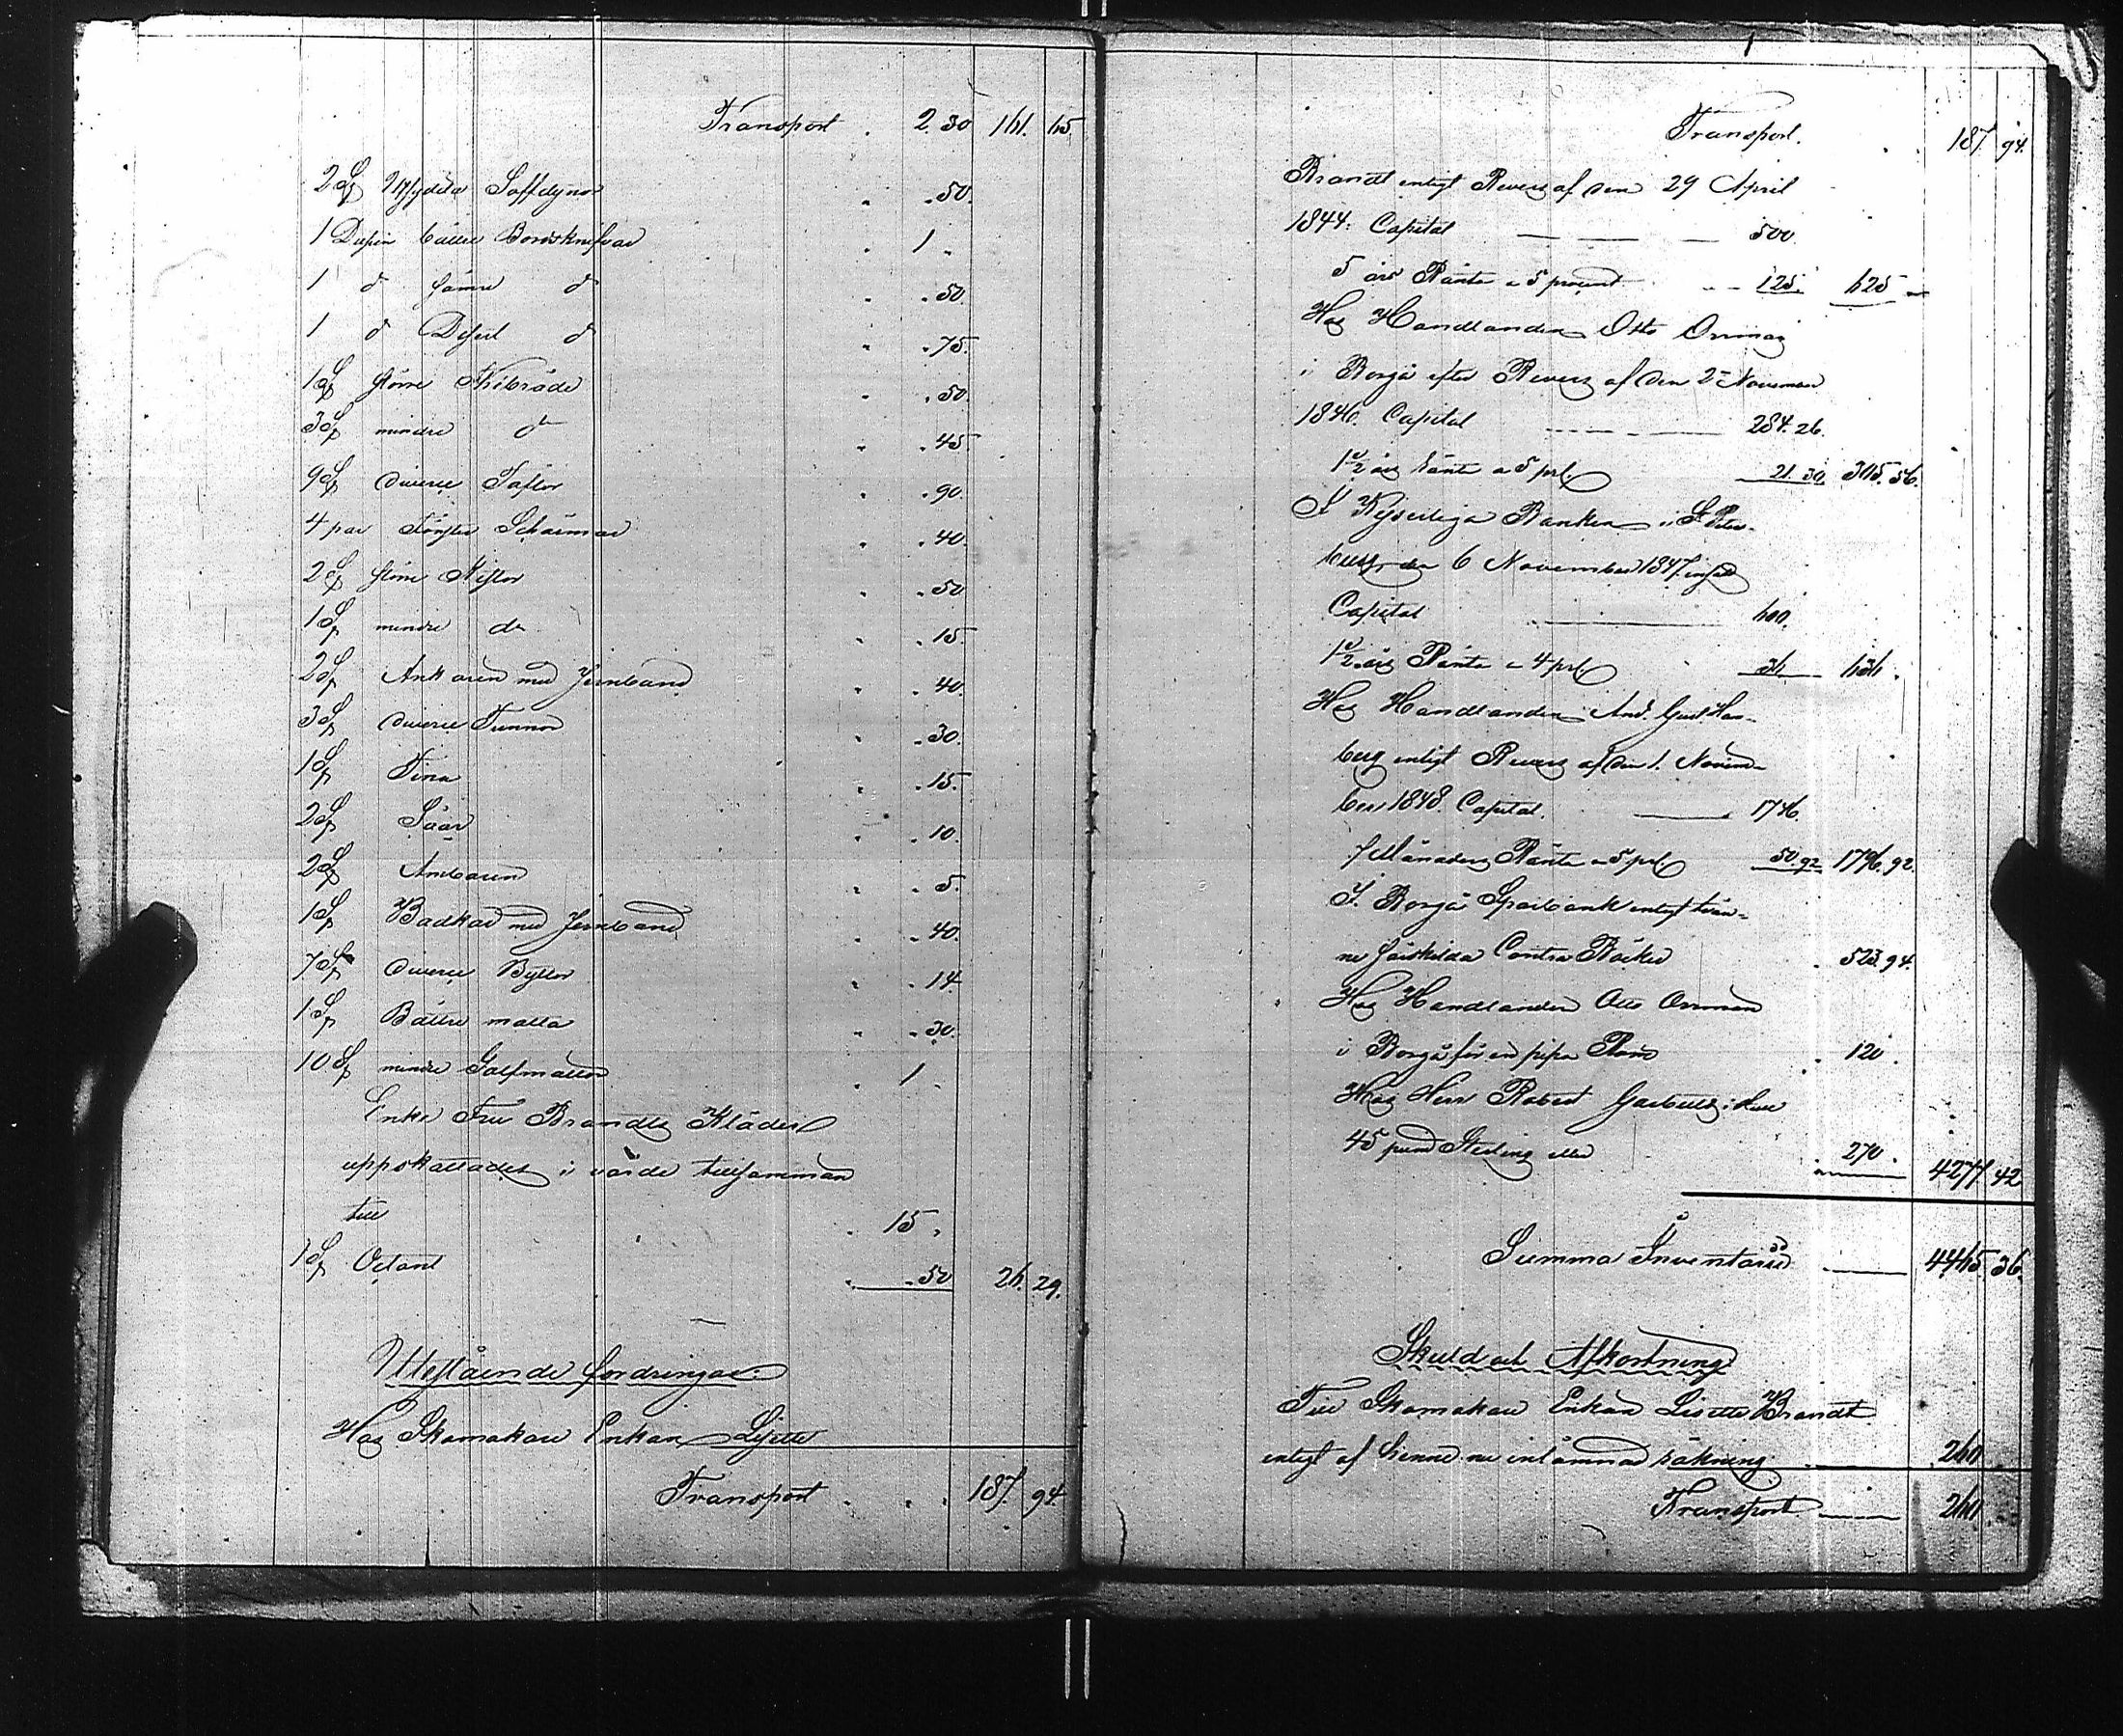 Transport . 2.30 161. 65.
2 St Soffdynor . " 50.
1 Dusin bättre Bordsknifvar . 1 "
1 d:o sämre d:o . " 50.
1 d:o Desert d:o . " 75.
1 St större Thebräde . " 50.
3 St mindre d:o . " 45.
9 St diverse Taflor . " 90.
4 par Fönster Schärmar . " 40.
2 St större Kistor . " 50
1 St mindre d:o . " 15.
2 St Ankaren med Jernband . " 40.
3 St diverse Tunnor . " 30.
1 St Tina . " 15.
2 St Såar . " 10.
2 St Ambaren . " 5.
1 St Badkar med Jernband . " 40.
7 St diverse Byttor . " 14.
1 St Bättre matta . " 30.
10 St mindre Golfmattor . 1 "
Enke Fru Brandts Kläder
uppskattades i värde tillsamman
till . 15 "
1 St Octant . " 50 26. 29.
Utestående fordringar.
Hos Skomakare Enkan Lisette
Transport . . . 187. 94.
Transport. . 187. 94.
Brandt enligt Revers af den 29 April
1844. Capital 500.
5 års Ränta a 5 procent 125. 625 "
Hos Handlanden Otto Orrman
i Borgå efter Revers af den 2 November
1846. Capital 284. 26.
1 1/2 års ränta a 5 prct 21. 30. 305. 56.
I Kejserliga Banken i St Peters-
burg den 6 November 1847 insatt
Capital 600.
1 1/2 års Ränta a 4 prct 36 636 .
Hos Handlanden And. Gust
berg enligt Revers af den 1. Novem-
ber 1848. Capital. 1746.
7 Månaders Ränta a 5 prct 50. 92 1796. 92.
I Borgå Sparbank enligt tvän-
ne särskilda Contra Böcker . 523. 94.
Hos Handlanden Otto Orrman
i Borgå för en pipa Rom . 120 .
Hos Herr Robert i Hull
45 pund Sterling eller . 270 . 4277. 42
Summa Inventarii 4465. 36.
Skuld och Afkortning
Fru Skomakare Enkan Lisette Brandt
enligt af henne nu inlämnad räkning 260 .
Transport 260 .